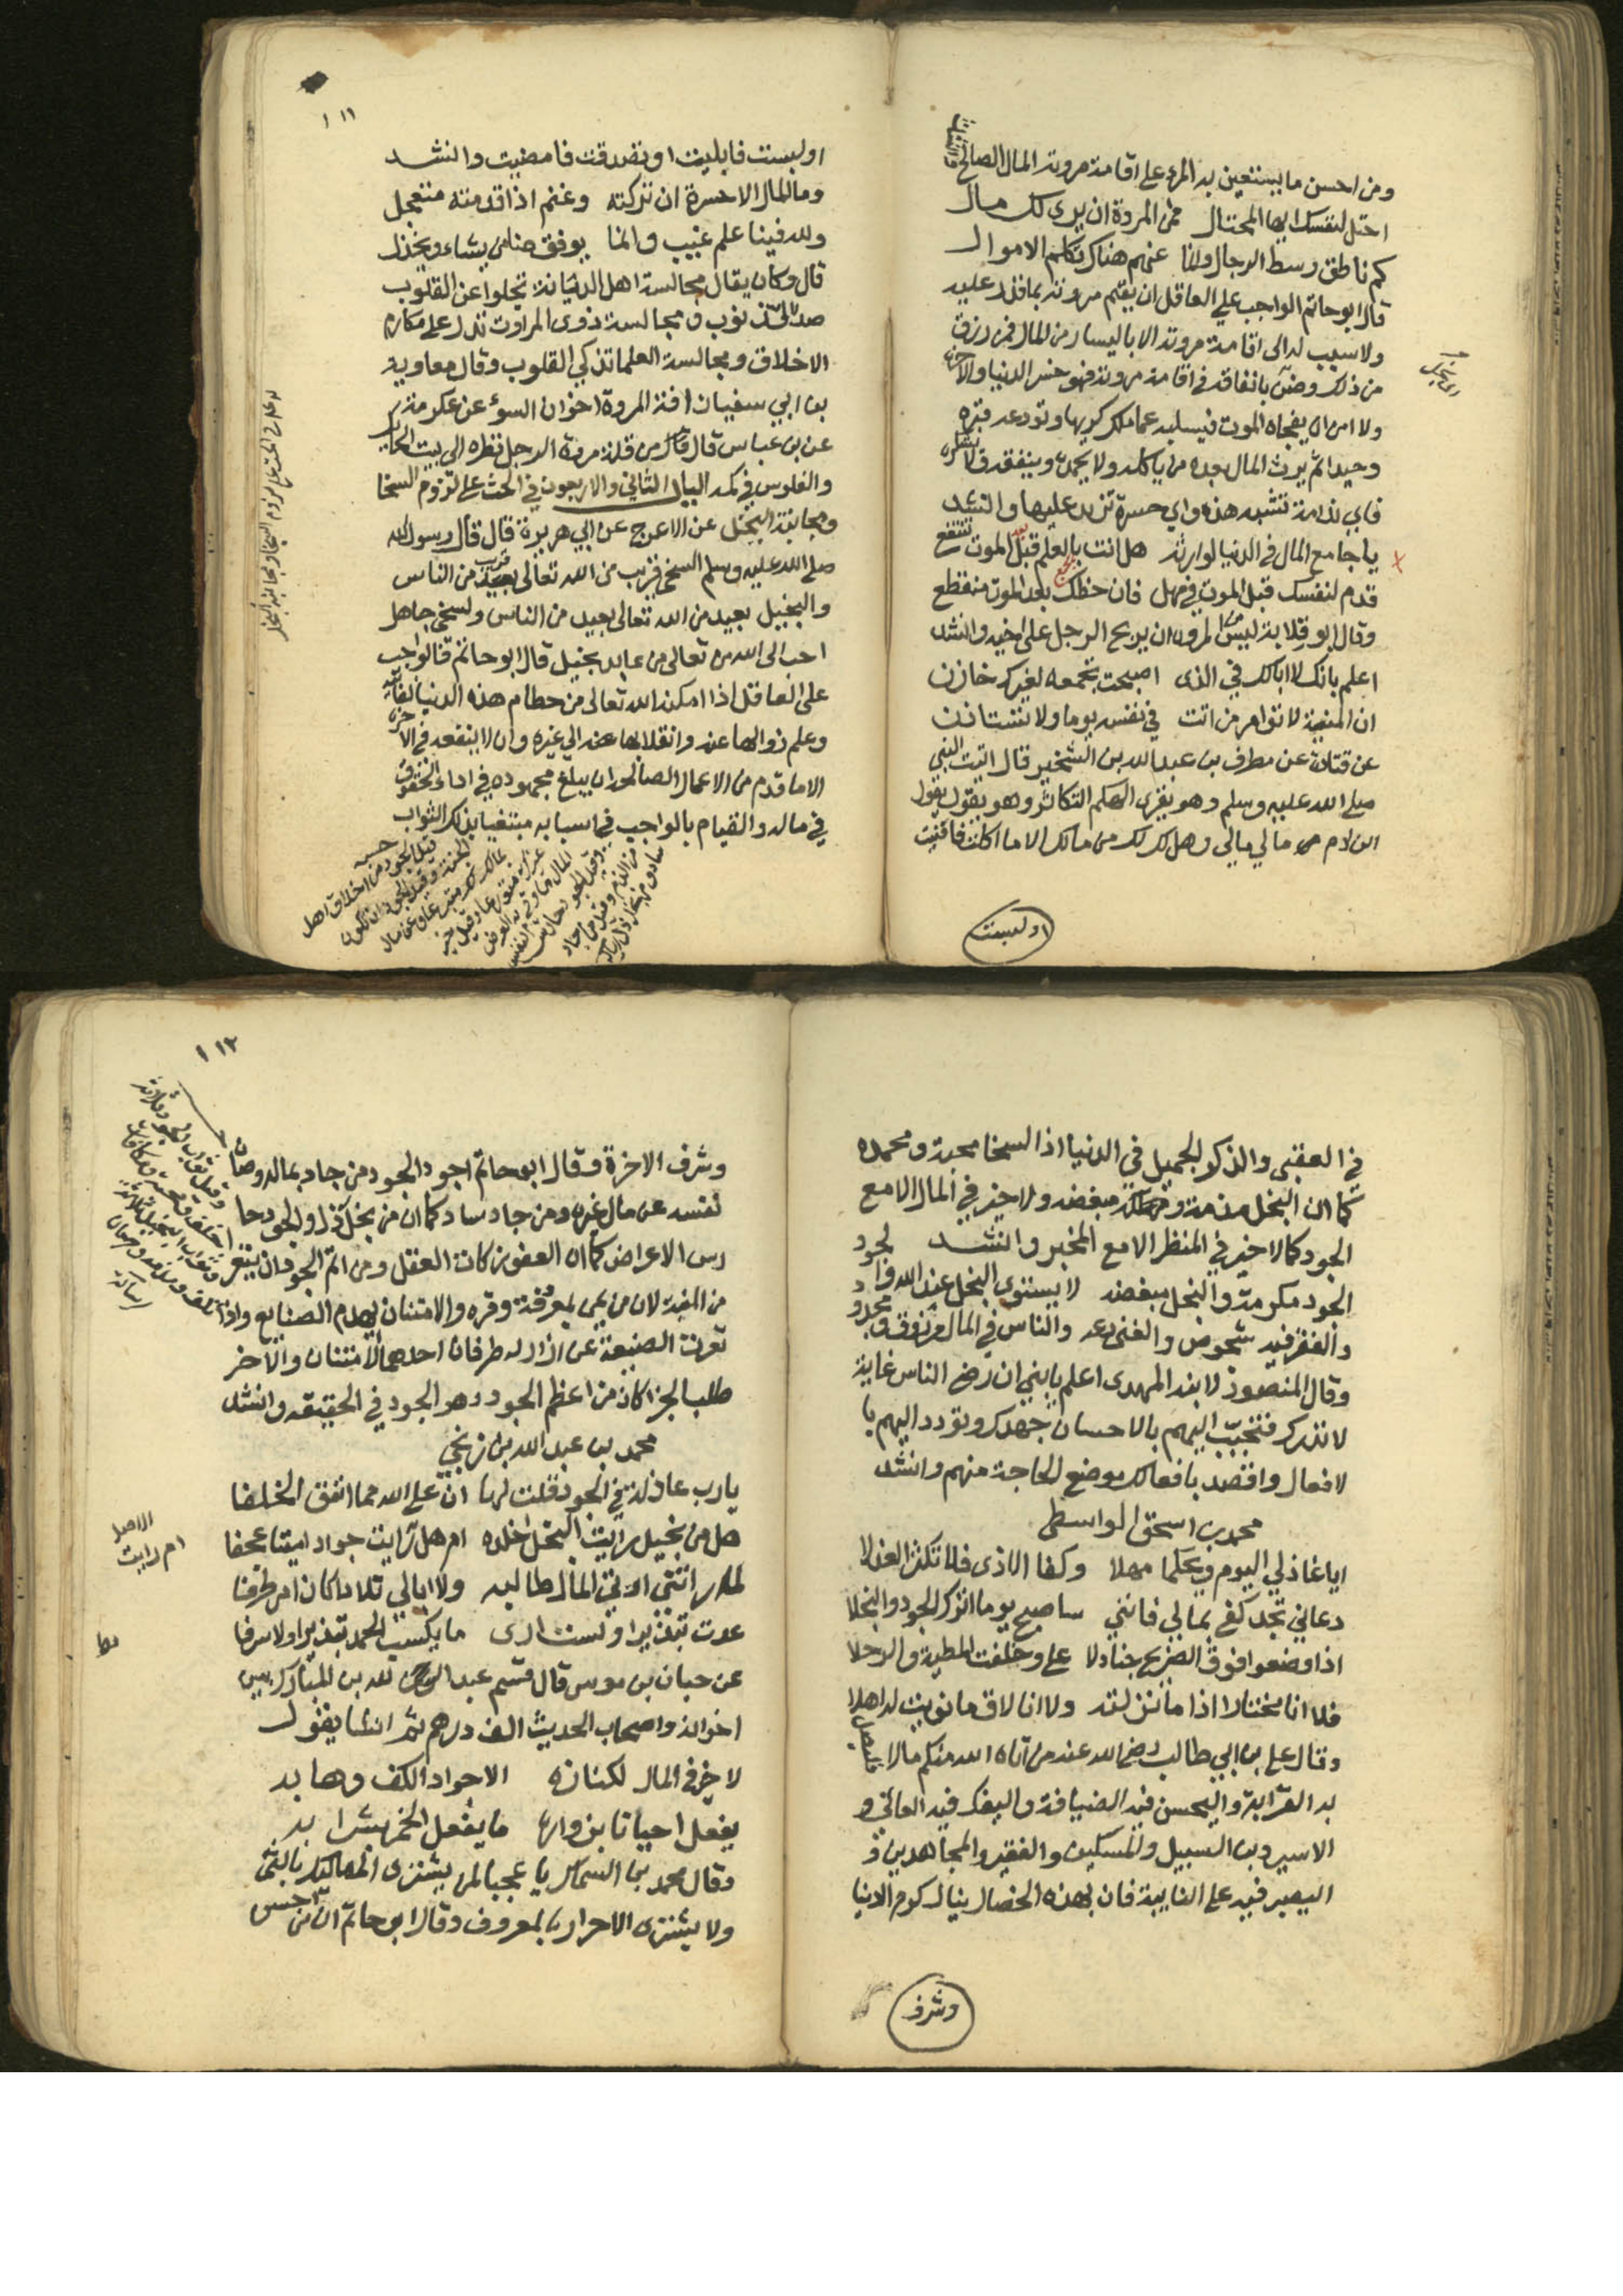 ومن احسن ما يستعين به المرء على اقامة مروته المال الصالح
احتل لنفسك ايها المحتال فمن المروة ان يرى لك مال
كم ناطق وسط الرجال وانما عنهم هناك تكلم الاموال
قال ابو حاتم الواجب على العاقل ان يقيم مروته بما قدر عليه
ولا سبيل له الى اقامة مروته الا باليسار من المال فمن رزق
من ذلك وضن بانفاقه في اقامة مروته فهو خسر الدنيا والاخرة
ولا امن ان يفجاه الموت فيسلبه عما ملك كريها وتودعه قبره
وحيدا ثم يرث المال بعده من ياكله ولا يحمده وينفقه ولا يشكره
فاي ندامة تشبه هذه واي حسرة تزيد عليها وانشد
يا جامع المال في الدنيا لوارثه هل انت بالعلم قبل الموت تنتفع
قدم لنفسك قبل الموت في مهل فان حظك بعد الموت منقطع
وقال ابو قلابة ليس من المروة ان يربح الرجل على اخيه وانشد
اعلم بانك لا ابالك في الذي اصبحت تجمعه لغيرك خازن
ان المنية لا تؤامر من اتت في نفسه يوما ولا تستاذن
عن قتادة عن مطرف بن عبد الله بن الشخير قال اتيت النبي
صلى الله عليه وسلم وهو يقرى الهكم التكاثر وهو يقول يقول
ابن ادم مالي مالي وهل لك من مالك الا ما اكلت فافنيت
اولبست
١١١
اولبست فابليت او تصدقت فامضيت وانشد
وما المال الا حسرة ان تركته وغنم اذا قدمته متعجل
ولله فينا علم غيب وانما يوفق منا من يشاء ويخذل
قال وكان يقال مجالسة اهل الديانة تجلوا عن القلوب
صدا الذنوب ومجالسة ذوى المروآت تدل على مكارم
الاخلاق ومجالسة العلما تذكي القلوب وقال معاوية
بن ابي سفيان افة المروة اخوان السوء عن عكرمة
عن بن عباس قال قال من قلة مروة الرجل نظره الى بيت الحايك
والفلوس في كمه الباب الثاني والاربعون في الحث على لزوم السخا
ومجانبة البخل عن الاعرج عن ابي هريرة قال قال رسول الله
صلى الله عليه وسلم السخي قريب من الله تعالى قريب من الناس
والبخيل بعيد من الله تعالى بعيد من الناس ولسخي جاهل
احب الى الله من تعالى من عابد بخيل قال ابو حاتم فالواجب
على العاقل اذا امكنه الله تعالى من حطام هذه الدنيا الفانية
وعلم زوالها عنه وانقلابها عنه الى غيره وان لا ينفعه في الاخرة
الا ما قدم من الاعمال الصالحة ان يبلغ مجهوده في اداء الحقوق
في ماله والقيام بالواجب في اسبابه مبتغيا بذلك الثواب
في العقبى والذكر الجميل في الدنيا اذ السخا محبة ومحمدة
كما ان البخل مذمة ومبغضة ولا خير في المال الا مع
الجود كما لا خير في المنظر الا مع المخبر وانشد
الجود مكرمة والبخل مبغضة لا يستوي البخل عند الله والجود
والفقر فيه شخوص والغنى دعة والناس في المال مرزوق ومحدود
وقال المنصور لابنه المهدى اعلم يا بني ان رضى الناس غاية
لا تدرك فتحبب اليهم بالاحسان جهدك وتودد اليهم با
لافعال واقصد بافعالك موضع الحاجة منهم وانشد
محمد بن اسحق الواسطى
ايا عاذلي اليوم ويحكما مهلا وكفا الاذى فلا تكثرا العذلا
دعاني تجد كفي بمالي فانني ساصبح يوما اترك الجود والبخلا
اذا وضعوا فوق الضريح جنادلا علي وخلفت المطية والرحلا
فلا انا مختار اذا ما نزلته ولا انا لاق ما نويت له اهلا
وقال علي بن ابي طالب رضى الله عنه من آتاه الله منكم مالا فليصل
به القرابة واليحسن فيه الضيافة واليفك فيه العاني و
الاسير وبن السبيل والمسكين والفقير والمجاهدين و
اليصبر فيه على النايبة فان بهذه الخصال ينال كرم الدنيا
وشرف
١١٢
وشرف الاخرة وقال ابو حاتم اجود الجود من جاد بماله وصان
نفسه عن مال غيره ومن جاد ساد كما ان من بخل رذل والجود حا
رس الاعراض كما ان العفو زكات العقل ومن اتم الجود ان يتعرى
من المنة لان من يمن بمعروفة وقره والامتنان يهدم الصنايع واذا
تعرت الصنيعة عن ازار له طرفان احدهما الامتنان والاخر
طلب الجزا كان من اعظم الجود وهو الجود في الحقيقه وانشد
محمد بن عبد الله بن زنجي
يا رب عاذلة في الجود قلت لها ان على الله مما انفق الخلفا
هل من بخيل رايت البخل اخلده ام هل رايت جواد ميتا عجفا
الاصل
ام رايت
عدت تبذيرا ولست ارى ما يكسب الحمد تبذيرا ولا سرفا
عن حبان بن موسى قال قسم عبد الله بن المبارك بين
اخوانه واصحاب الحديث الف درهم ثم انشا يقول
لا خير في المال لكنازه الا جواد الكف وهابه
يفعل احيانا بزوارها ما يفعل الخمر بشرابه
وقال محمد بن السماك يا عجبا لمن يشترى المماليك بالثمن
ولا يشترى الاحرار بالمعروف وقال ابو حاتم ان من حسن